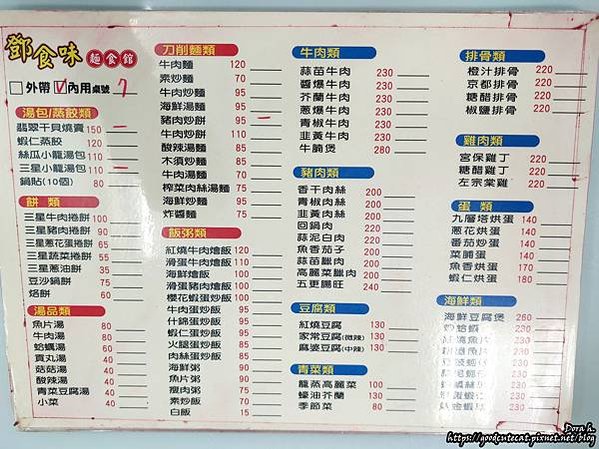 鄧食味 麵食館
外帶 內用 桌號 7
湯包/蒸餃類
翡翠干貝燒賣150
蝦仁蒸餃 120
絲瓜小龍湯包110
三星小龍湯包110
鍋貼(10個) 80
餅 類
三星牛肉捲餅100
三星豬肉捲餅 90
三星蔥花蛋捲餅 90
三星蔬菜捲餅 60
三星蔥油餅 30
豆沙鍋餅 75
烙餅 60
湯品類
魚片湯 80
牛肉湯 80
蛤蠣湯 60
貢丸湯 40
菇菇湯 40
酸辣湯 40
青菜豆腐湯 40
小菜 40
刀削麵類
牛肉麵 120
素炒麵 70
牛肉炒麵 95
海鮮湯麵 95
豬肉炒餅 95
牛肉炒餅 110
酸辣湯麵 75
木須炒麵 80
牛肉湯麵 70
榨菜肉絲湯麵 75
海鮮炒麵 95
炸醬麵 75
飯粥類
紅燒牛肉燴飯120
滑蛋牛肉燴飯110
海鮮燴飯 100
滑蛋豬肉燴飯100
櫻花蝦蛋炒飯100
牛肉蛋炒飯 90
什錦蛋炒飯 90
蝦仁蛋炒飯 90
火腿蛋炒飯 80
肉絲蛋炒飯 80
海鮮粥 90
魚片粥 90
瘦肉粥 75
素炒飯 70
白飯 15
牛肉類
蒜苗牛肉 230
醬爆牛肉 230
芥蘭牛肉 230
蔥爆牛肉 230
青椒牛肉 230
韭黃牛肉 230
牛腩煲 280
豬肉類
香干肉絲 200
青椒肉絲 200
韭黃肉絲 200
回鍋肉 220
蒜泥白肉 220
魚香茄子 200
蒜苗臘肉 200
高麗菜臘肉 200
五更腸旺 240
豆腐類
紅燒豆腐 130
家常豆腐(微辣) 130
麻婆豆腐(中辣) 130
青菜類
龍蒸高麗菜 100
蠔油芥蘭 130
季節菜 80
排骨類
橙汁排骨 220
京都排骨 220
糖醋排骨 220
椒鹽排骨 220
雞肉類
宮保雞丁 220
糖醋雞丁 220
左宗棠雞 220
蛋 類
九層塔烘蛋 140
蔥花烘蛋 140
番茄炒蛋 140
菜脯蛋 140
魚香烘蛋 170
蝦仁烘蛋 180
海鮮類
海鮮豆腐煲 260
炒蛤蠣 230
魚片 230
魚片 230
230
230
230
230
Dora h.
https://goodcutecat.pixnet.net/blog